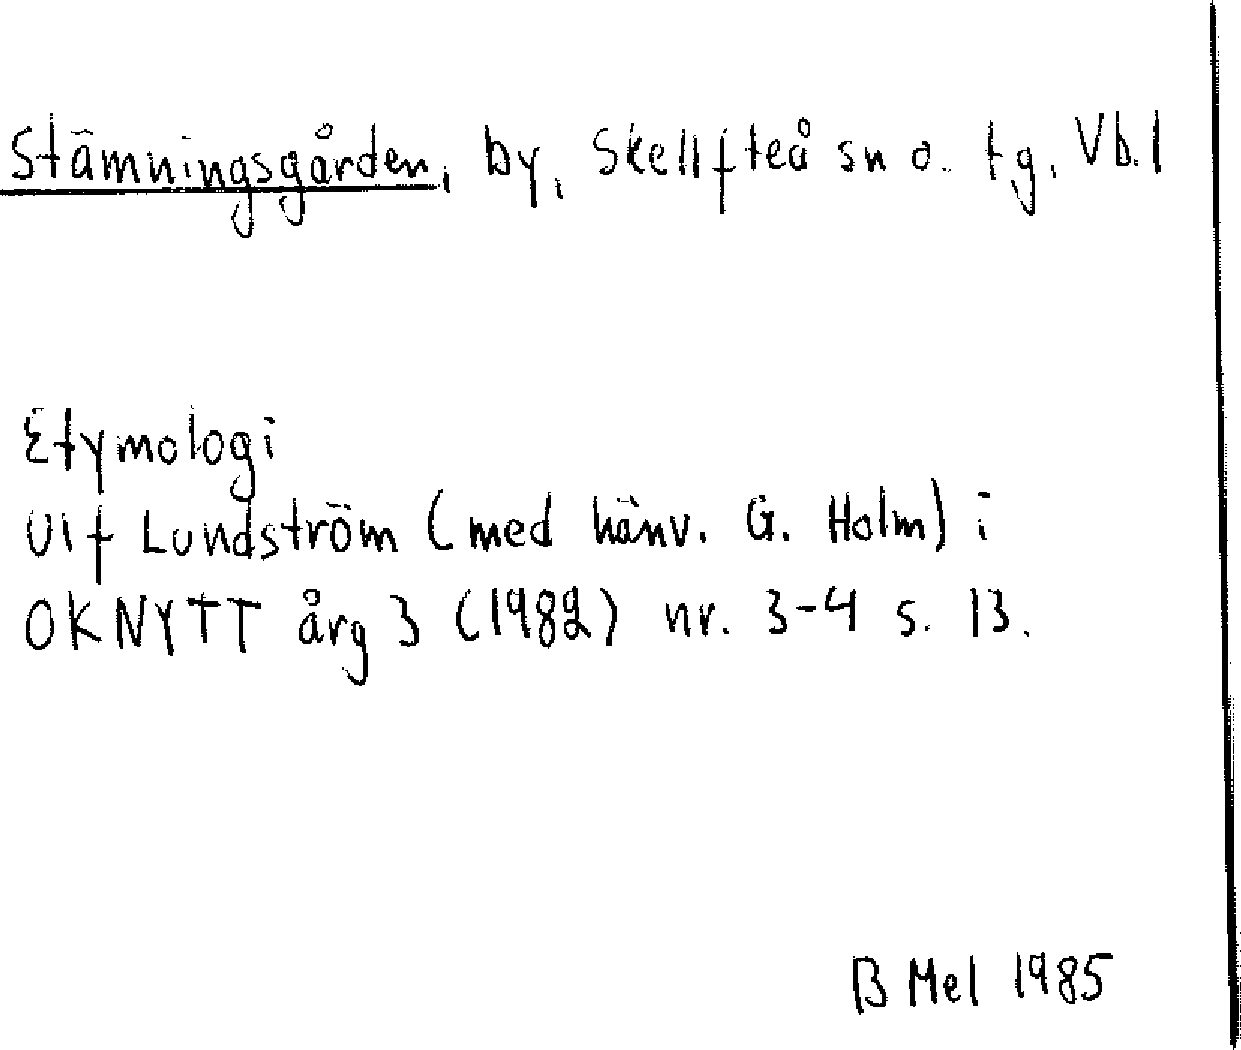 Stämningsgården, by, Skellfteå sn o. tg, Vb.l
Etymologi
Ulf Lundström (med hänv. G. Holm) i
OKNYTT årg 3 (1982) nr. 3-4 s. 13.
B Mel 1985